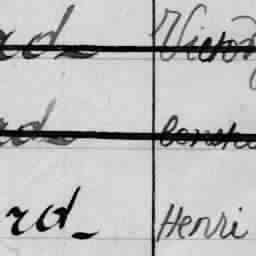 rd Victor
rd
rd Henri